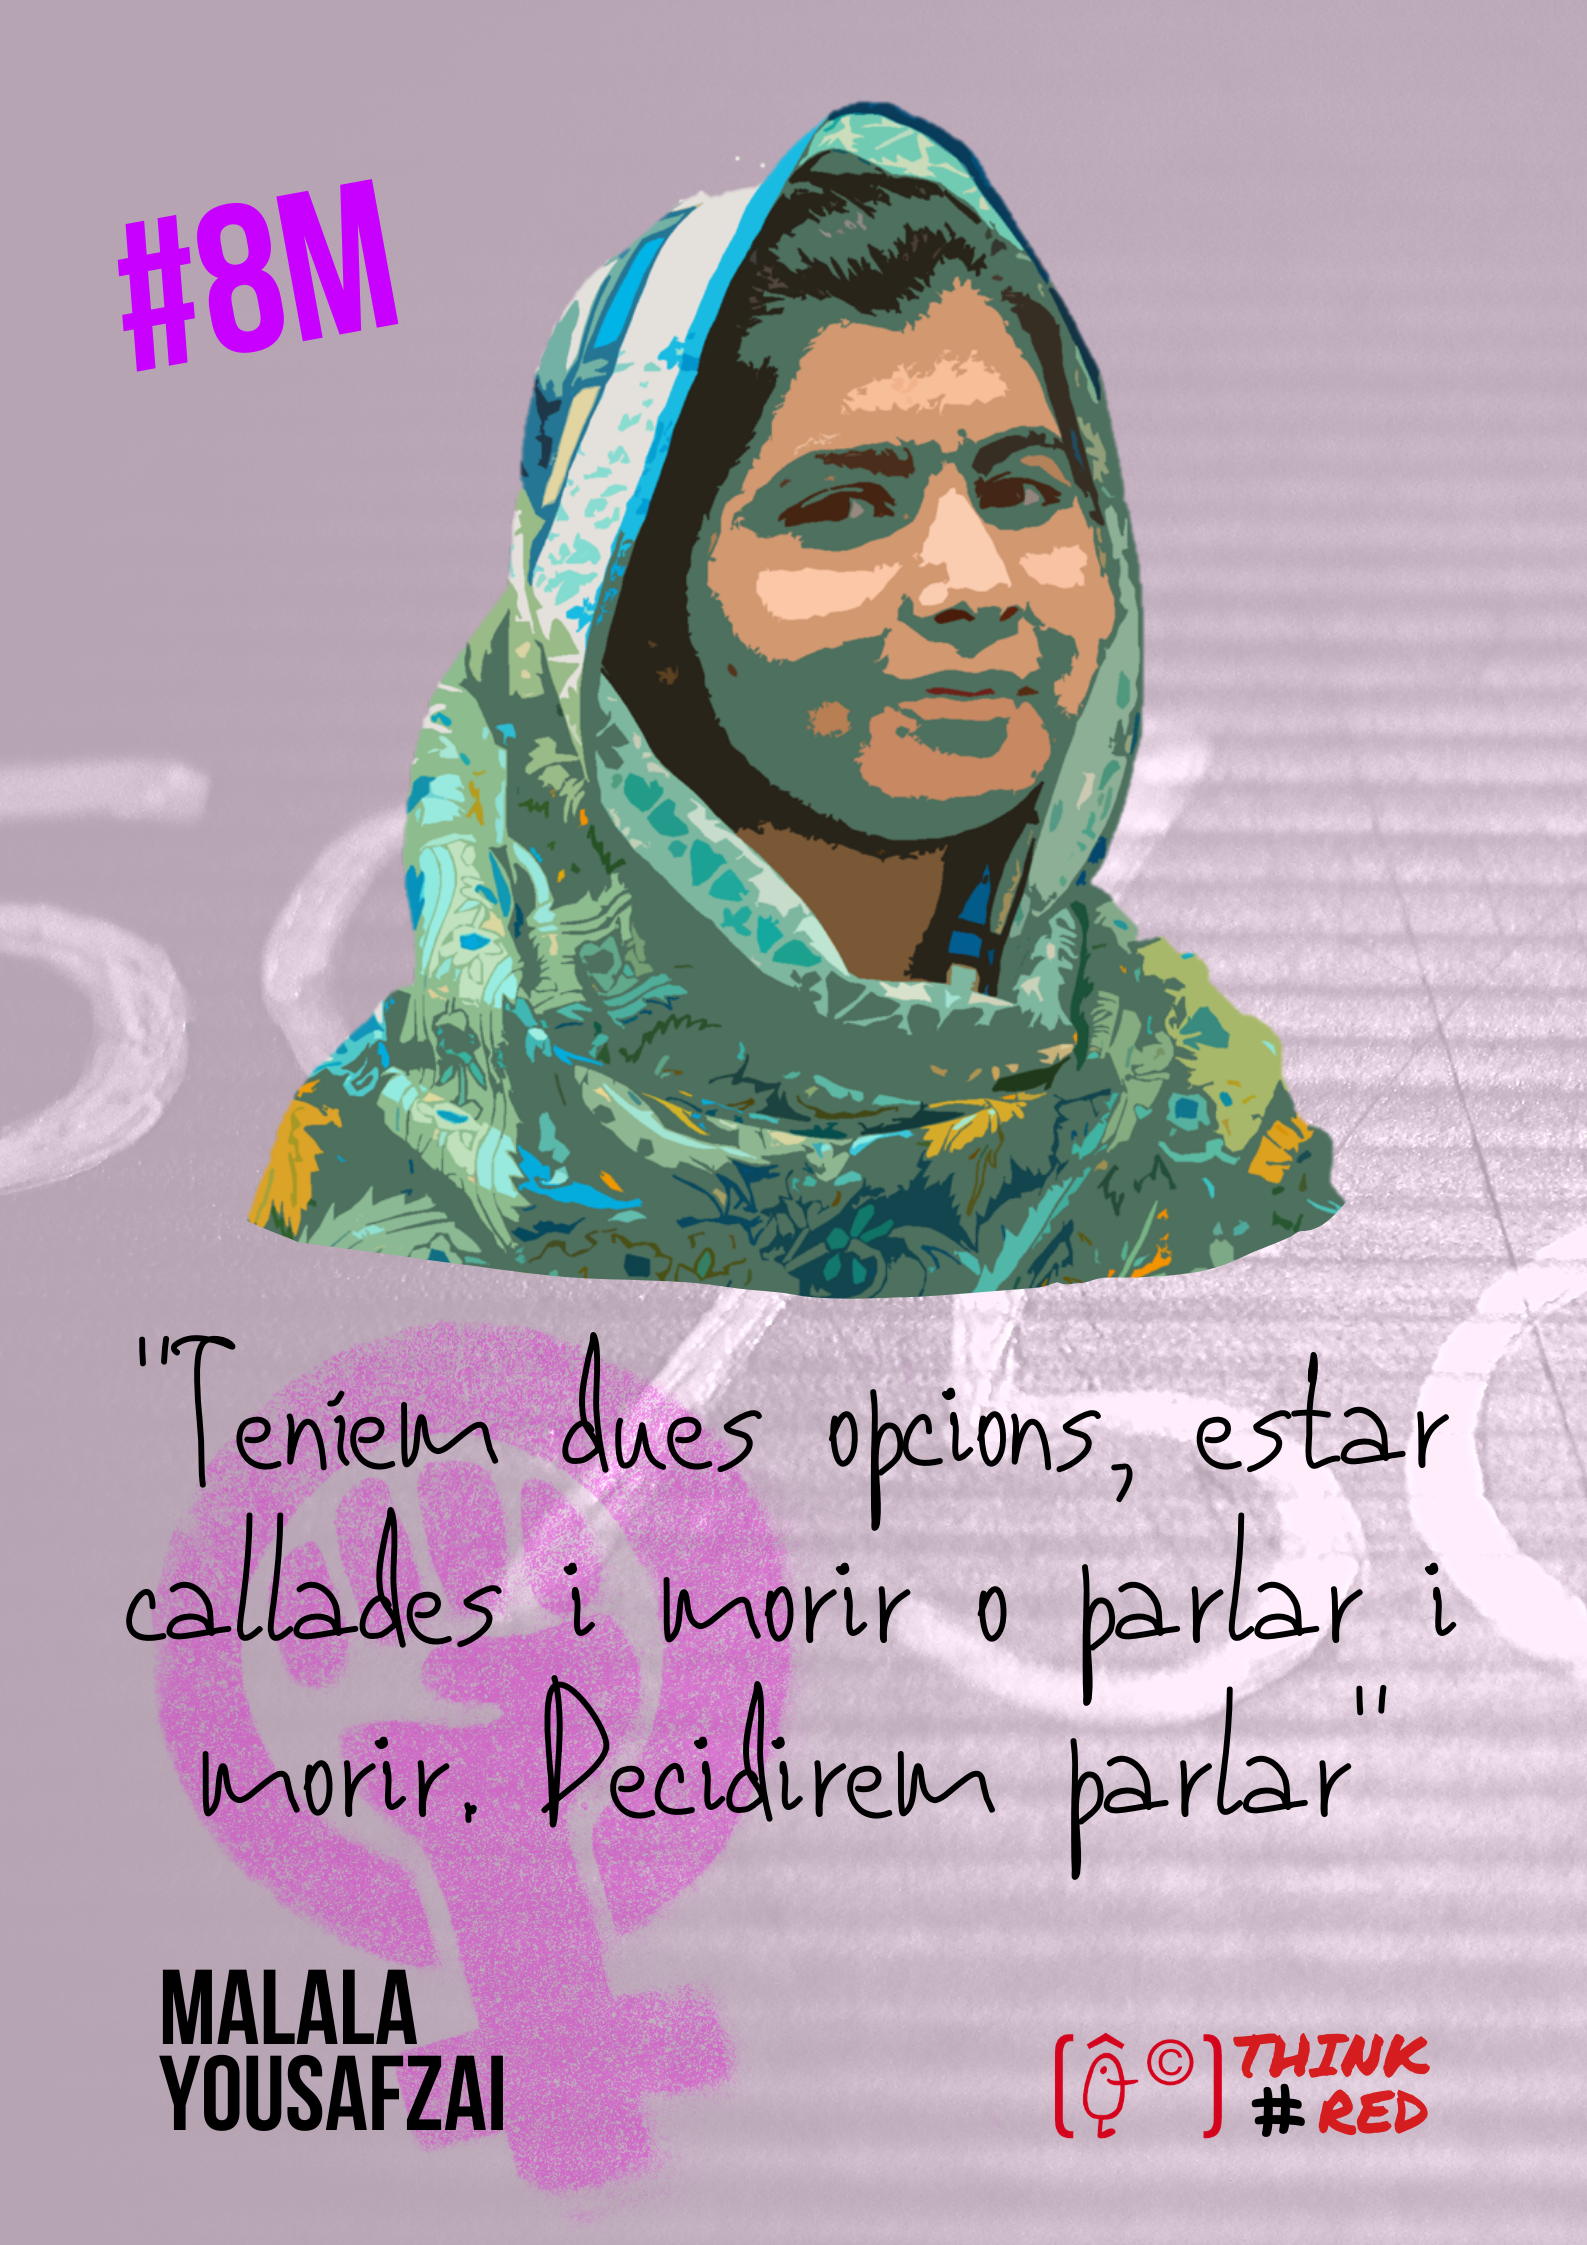 #8M
"Teníem dues opcions, estar
callades i morir o parlar i
morir. Decidirem parlar"
MALALA
YOUSAFZAI
THINK
# RED